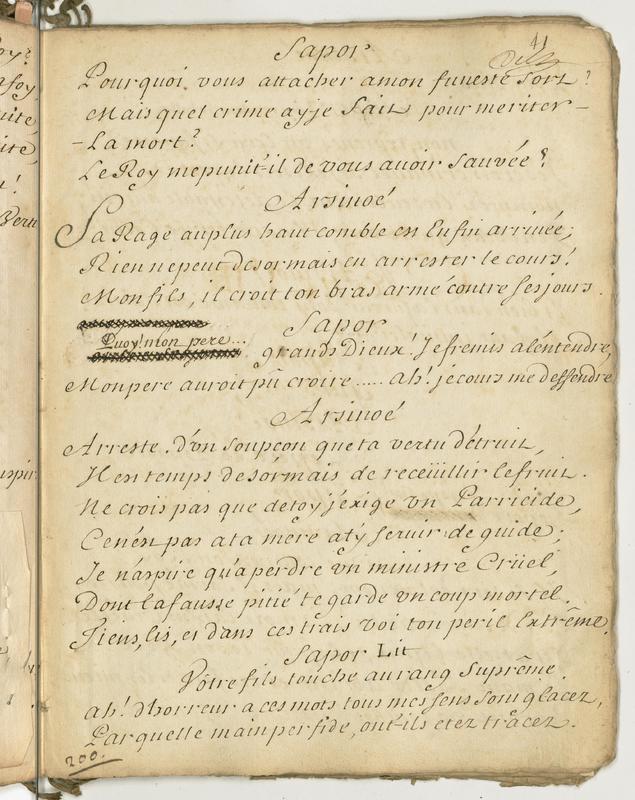 41
Sapor
Pourquoi vous attacher amon funeste sort ?
Mais quel crime ayje fait pour meriter -
- La mort ?
Le Roy mepunit-il de vous avoir sauvée ?
Arsinoé
Sa Rage auplus haut comble en Enfin arrivée ;
Rien nepeut desormais en arrester le cours !
Mon fils, il croit ton bras armé contre ses jours .
Sapor
Quoy ! mon pere ...
grands Dieux ! Je fremis alentendre,
Monpere auroit pû croire ..... ah ! je cours me deffendre
Arsinoé
Arreste . d'vn soupçon queta vertu détruit,
Il en temps desormais de recëüillir le fruit .
Ne crois pas que detoy j'exige vn Parricide,
Cen'en pas a ta mere at'y servir de guide ;
Je n'aspire qu'a perdre vn ministre Crüel,
Dont la fausse pitié te garde vn coup mortel .
Tiens, lis, et dans ces traits voi ton peril Extrême .
Sapor Lit
Vôtre fils touche au rang Suprême .
ah ! d'horreur a ces mots tous mes sens sont glacez,
Par quelle main perfide, ont-ils etez tracez .
200.